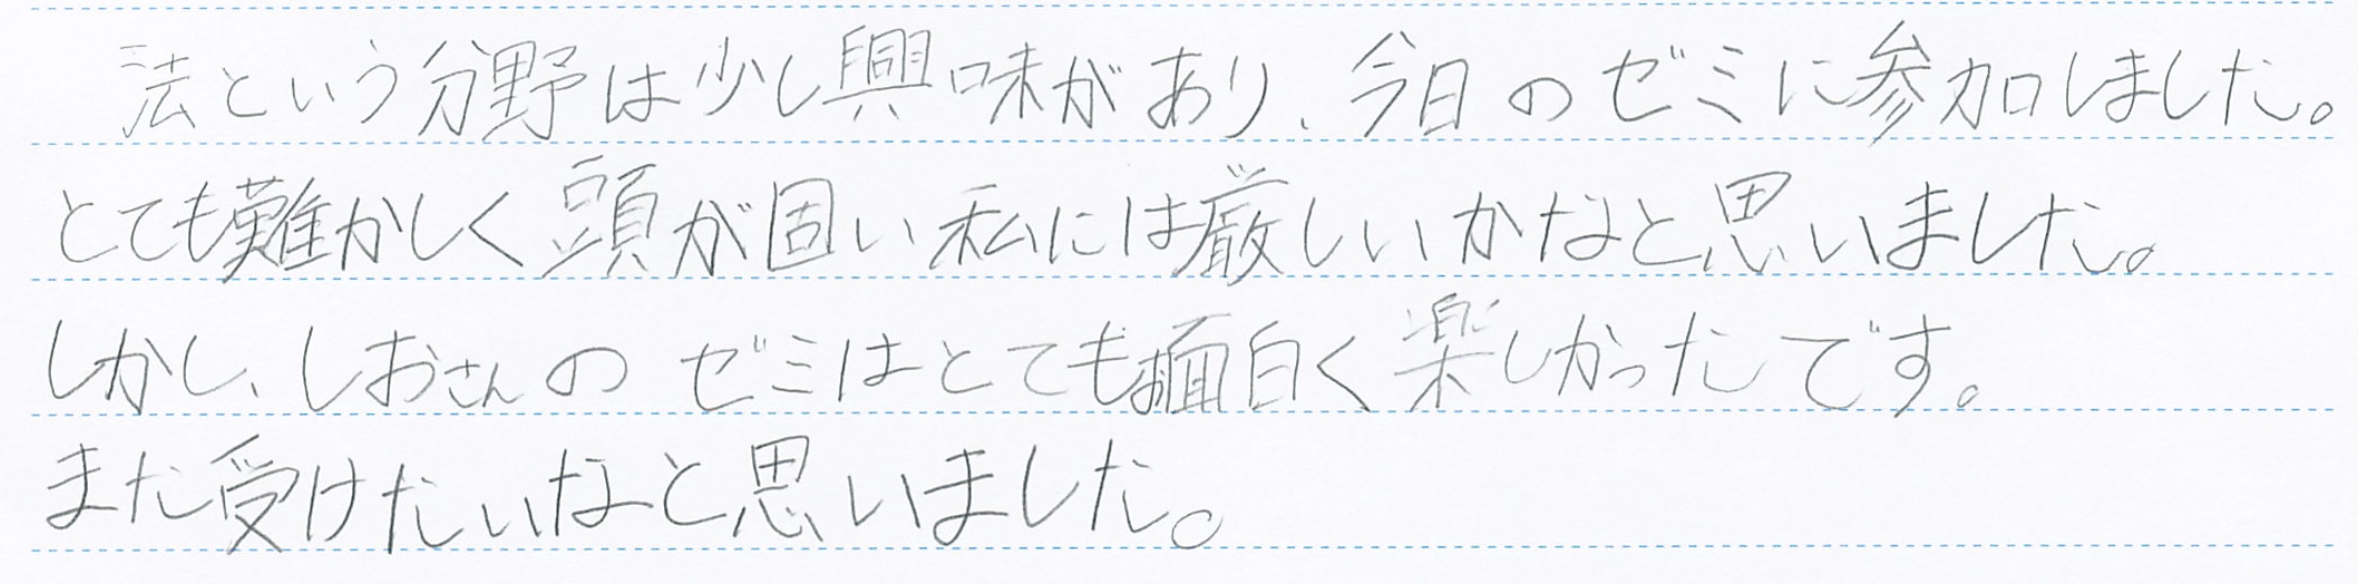 法という分野は少し興味があり、今日のゼミに参加しました。
とても難かしく頭が固い私には厳しいかなと思いました。
しかし、しおさんのゼミはとてもお面白く楽しかったです。
また受けたいなと思いました。